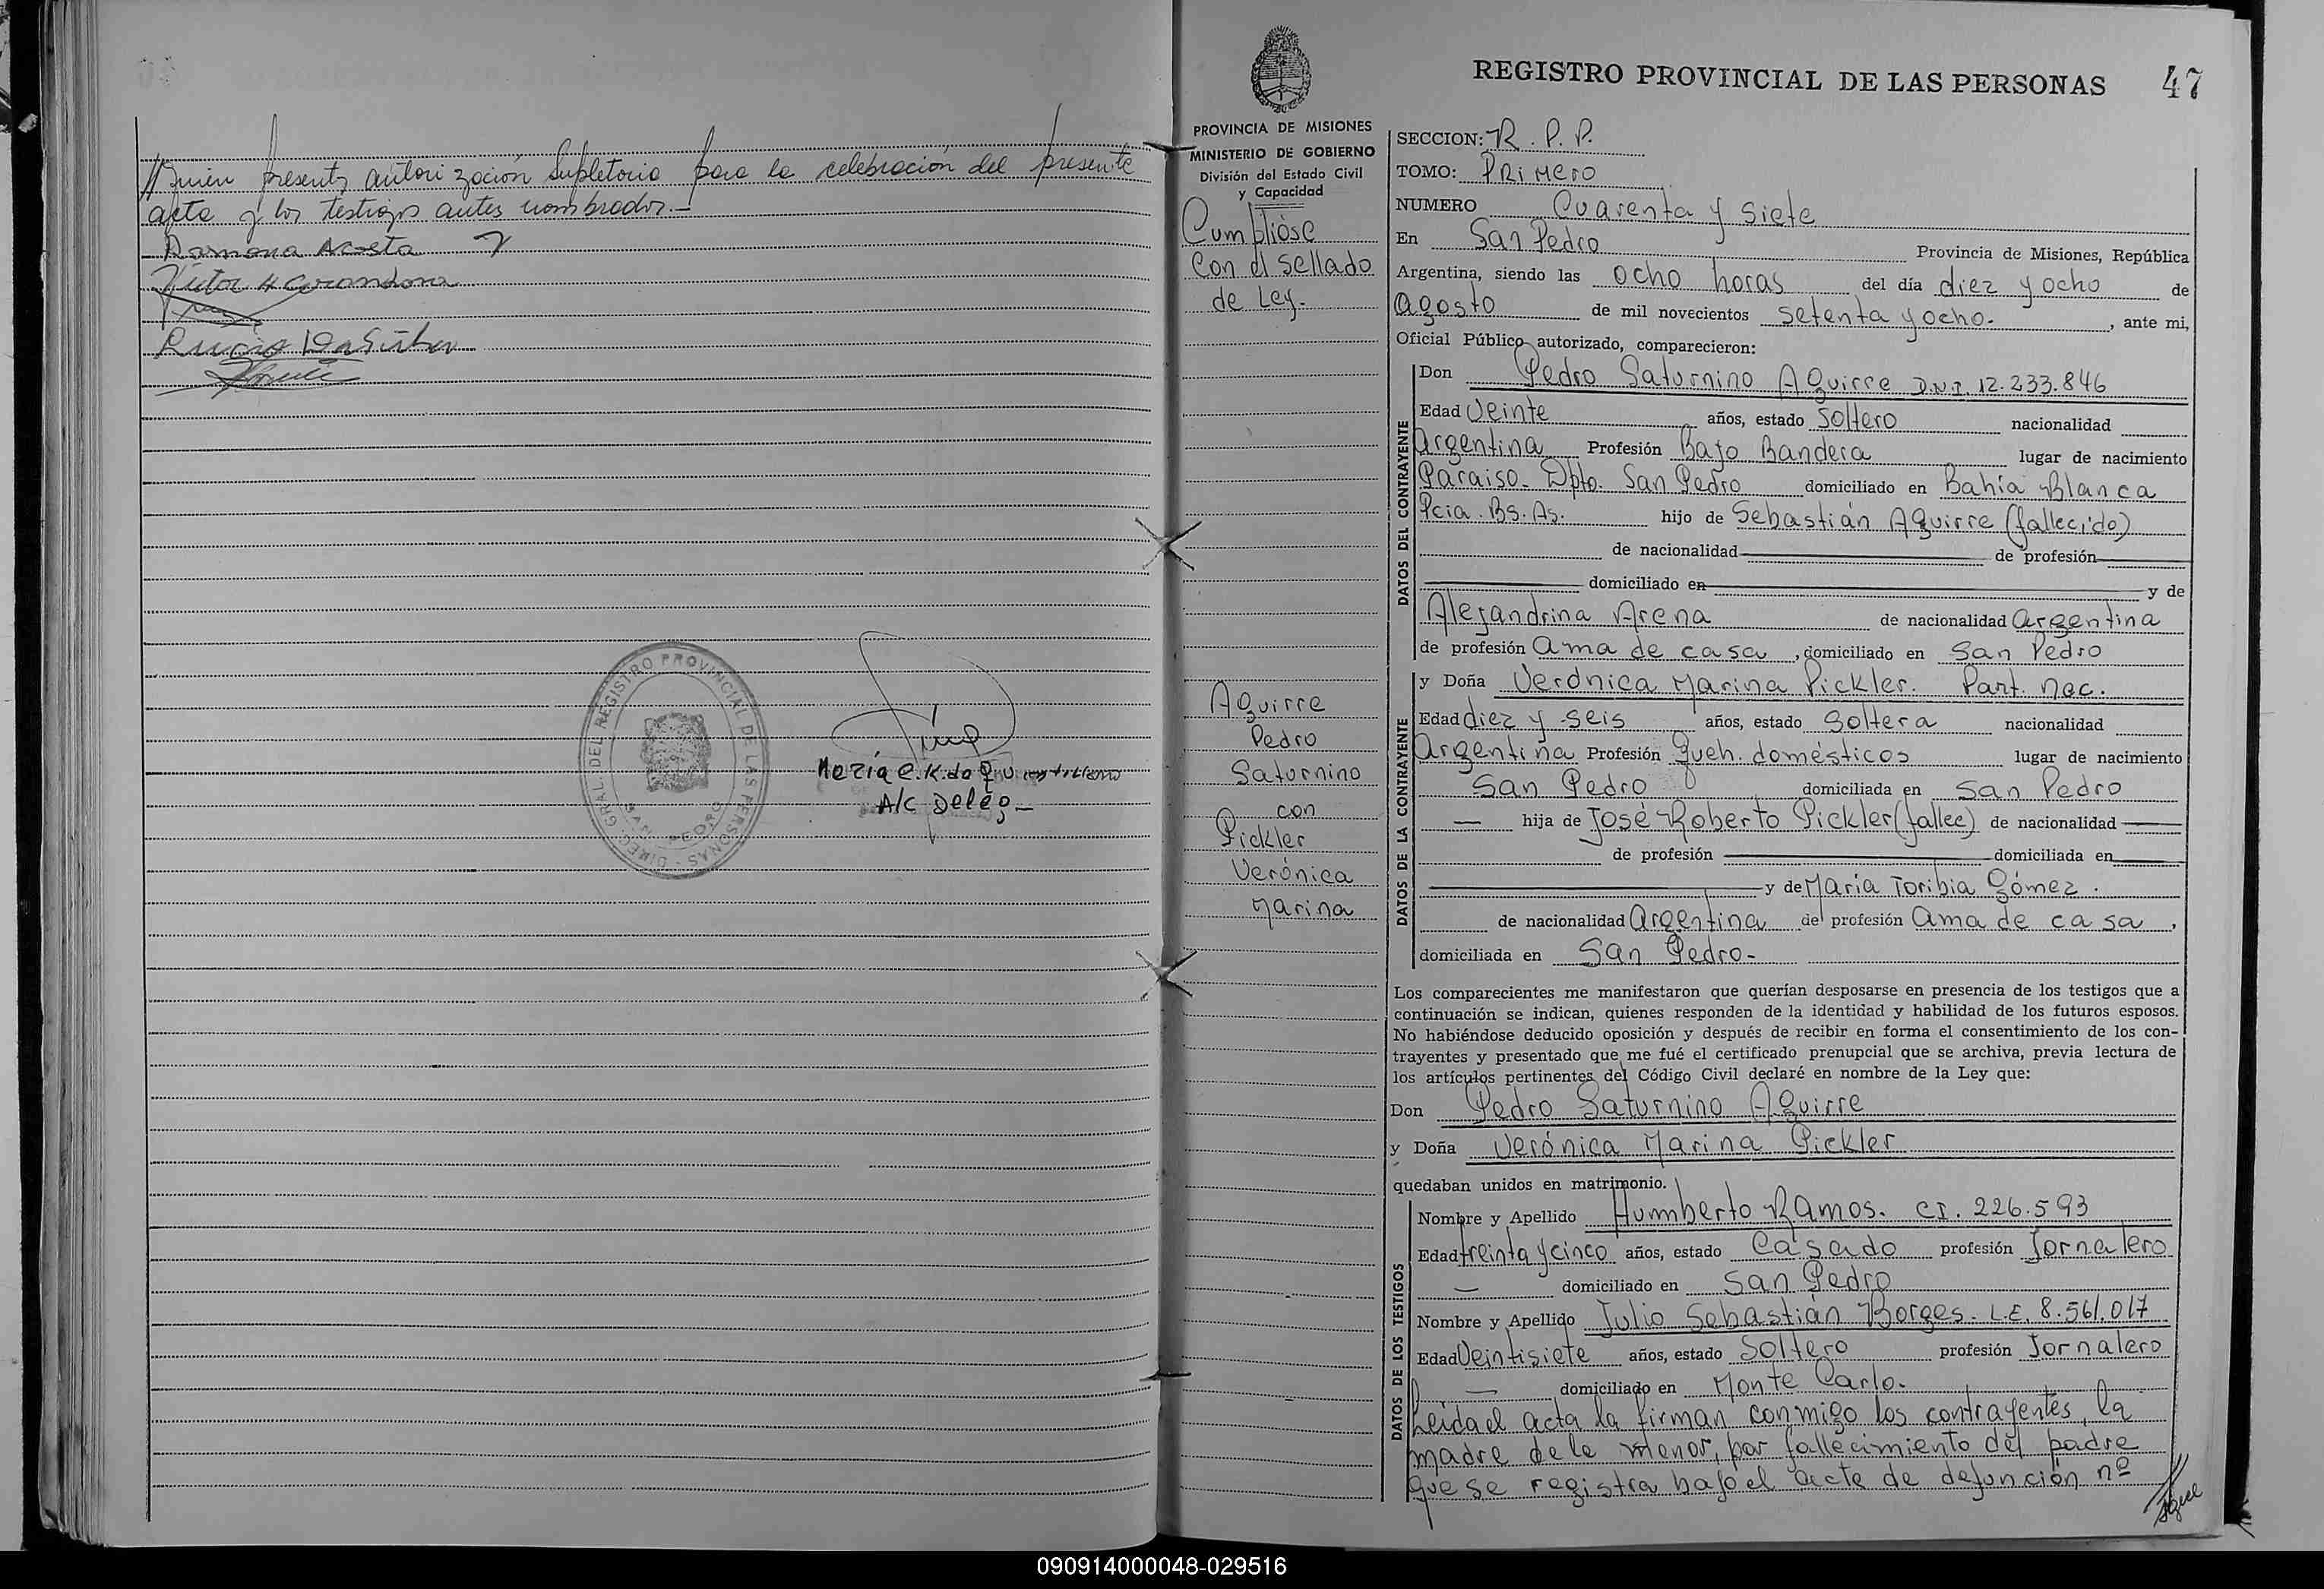 //quien presenta autorización Supletoria para la celebración del presente
acta y los testigos antes nombrados.-
Ramona Acosta
Victor H
DIREC. GRAL. DEL REGISTRO PROVINCIAL DE LAS PERSONAS
SAN PEDRO
A/C Deleg-
REGISTRO PROVINCIAL DE LAS PERSONAS 47
PROVINCIA DE MISIONES
MINISTERIO DE GOBIERNO
División del Estado Civil
y Capacidad
Cumplióse
con el sellado
de Ley.-
Aguirre
Pedro
Saturnino
con
Pickler
Verónica
Marina
SECCION: R.P.P.
TOMO: Primero
NUMERO Cuarenta y siete
En San Pedro Provincia de Misiones, República
Argentina, siendo las ocho horas del día diez y ocho de
agosto de mil novecientos setenta y ocho.- , ante mi,
Oficial Público autorizado, comparecieron:
DATOS DEL CONTRAYENTE
Don Pedro Saturnino Aguirre D.N.I. 12.233.846
Edad Veinte años, estado Soltero nacionalidad
argentina Profesión Bajo Bandera lugar de nacimiento
Paraiso- Dpto. San Pedro domiciliado en Bahía Blanca
Pcia. Bs. As. hijo de Sebastián Aguirre (fallecido)
de nacionalidad de profesión
domiciliado en y de
Alejandrina Arena de nacionalidad argentina
de profesión ama de casa , domiciliado en San Pedro
DATOS DE LA CONTRAYENTE
y Doña Verónica Marina Pickler. Part. nac.
Edad diez y seis años, estado soltera nacionalidad
argentina Profesión queh. domésticos lugar de nacimiento
San Pedro domiciliada en San Pedro
— hija de José Roberto Pickler (fallec) de nacionalidad
de profesión domiciliada en
y de María Toribia Gómez.
de nacionalidad argentina de profesión ama de casa ,
domiciliada en San Pedro-
Los comparecientes me manifestaron que querían desposarse en presencia de los testigos que a
continuación se indican, quienes responden de la identidad y habilidad de los futuros esposos.
No habiéndose deducido oposición y después de recibir en forma el consentimiento de los con-
trayentes y presentado que me fué el certificado prenupcial que se archiva, previa lectura de
los artículos pertinentes del Código Civil declaré en nombre de la Ley que:
Don Pedro Saturnino Aguirre
y Doña Verónica Marina Pickler
quedaban unidos en matrimonio.
DATOS DE LOS TESTIGOS
Nombre y Apellido Humberto Ramos. CI. 226.593
Edad treinta y cinco años, estado Casado profesión Jornalero
— domiciliado en San Pedro
Nombre y Apellido Julio Sebastián Borges. L.E. 8.561.017
Edad Veintisiete años, estado Soltero profesión Jornalero
— domiciliado en Monte Carlo.
Leida el acta la firman conmigo los contrayentes, la
madre de la menor, por fallecimiento del padre
que se registra bajo el acta de defunción nº
090914000048-029516